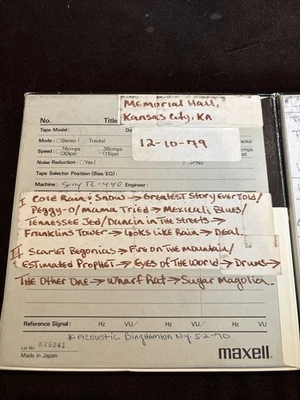 MEMORIAL HALL,
No. Title KANSAS CITY, KA
Tape Model:
12-10-79
Mode: Stereo ( Tracks)
Speed: 76cmps 38cmps
(30ips) (15ips)
Noise Reduction: Yes (
Tape Selector Position (Bias/EQ):
Machine: Sony TC-440 Engineer:
I COLD RAIN & SNOW → GREATEST STORY EVER TOLD/
PEGGY-O/MAMA TRIED → MEXICALI BLUES/
TENNESSEE JED/DANCIN IN THE STREETS →
FRANKLINS TOWER → LOOKS LIKE RAIN → DEAL.
II SCARLET BEGONIAS → FIRE ON THE MOUNTAIN/
ESTIMATED PROPHET → EYES OF THE WORLD → DRUMS →
THE OTHER ONE → WHARF RAT → SUGAR MAGOLIA.
Reference Signal: Hz VU/ Hz VU/ Hz VU
* ACOUSTIC BINGHAMTON NY. 5-2-70
Lot No K26242
Made in Japan
maxell